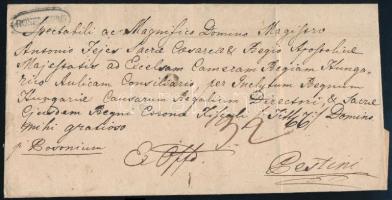 Spectabili ac Magnifico Domino Magistro
Antonio Fejes Sacræ Cæsareæ & Regio Apostolicæ
Majestatis ad Excelsam Cameram Regiam Hunga-
rico Aulicam Consiliario, per Inclytum Regnum
Hungariæ Causarum Regalium Directori, & Sacræ
Ejusdem Regni Coronæ Fiscali Domino
mihi gratioso
p Posonium
Ex Offo.
Pestini